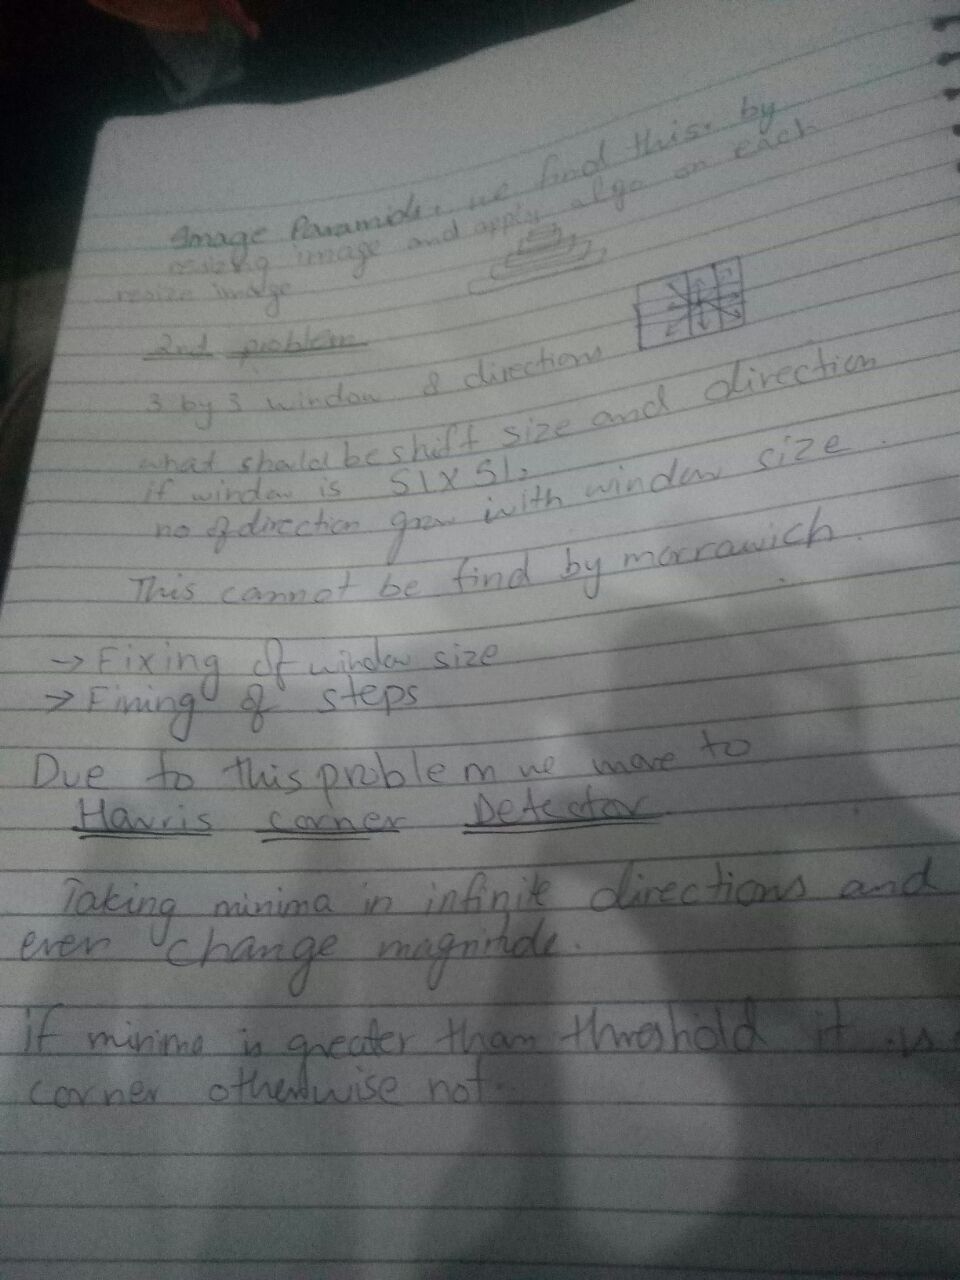 Image Paramide, we find this by
resizing image and apply algo on each
resize image
2nd problem
3 by 3 window 8 direction
what should be shift size and direction
if window is 51 X 51,
no of direction grow with window size.
This cannot be find by morrawich.
→ Fixing of window size
→ Fining of steps
Due to this problem we move to
Harris corner Detector
Taking minima in infinite directions and
even change magnitude.
if minima is greater than threshold it is
corner otherwise not.